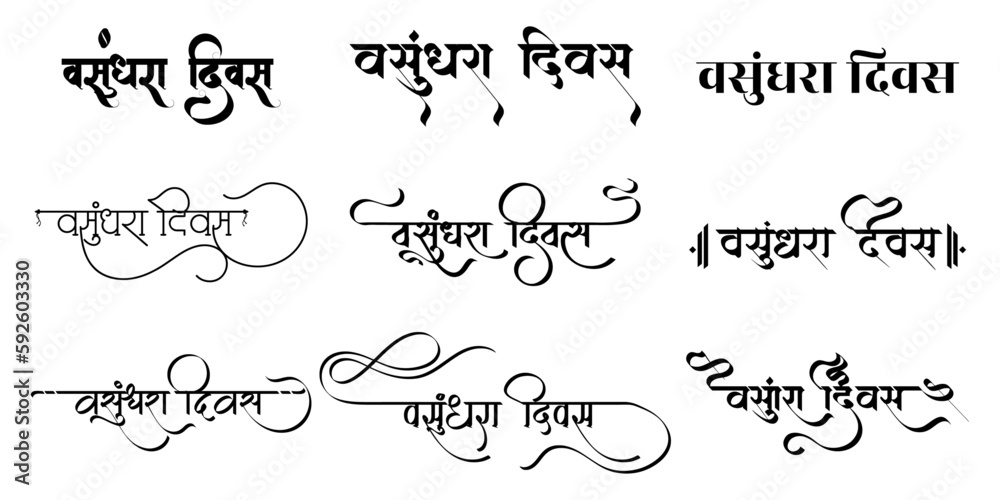 वसुंधरा दिवस
वसुंधरा दिवस
वसुंधरा दिवस
वसुंधरा दिवस
वसुंधरा दिवस
॥ वसुंधरा दिवस ॥
वसुंधरा दिवस
वसुंधरा दिवस
दिवस
Adobe Stock | #592603330